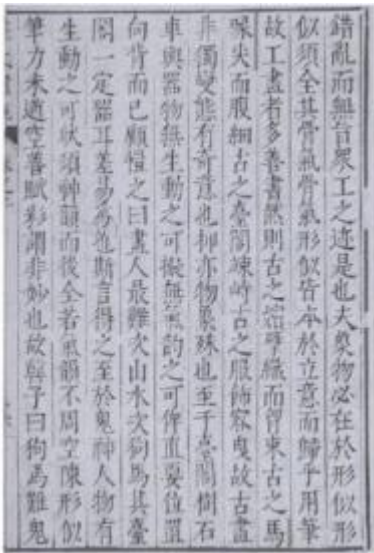 錯亂而無旨衆工之迹是也夫象物必在於形似形
似須全其骨氣骨氣形似皆本於立意而歸乎用筆
故工畫者多善書然則古之嬪擘纖而胷束古之馬
喙尖而腹細古之臺閣竦峙古之服飾容曳故古畫
非獨變態有奇意也抑亦物象殊也至于臺閣樹石
車輿器物無生動之可擬無氣韵之可侔直要位置
向背而已顧愷之曰畫人最難次山水次狗馬其臺
閣一定器耳差易爲也斯言得之至於鬼神人物有
生動之可狀須神韻而後全若氣韻不周空陳形似
筆力未遒空善賦彩謂非妙也故韓子曰狗馬難鬼